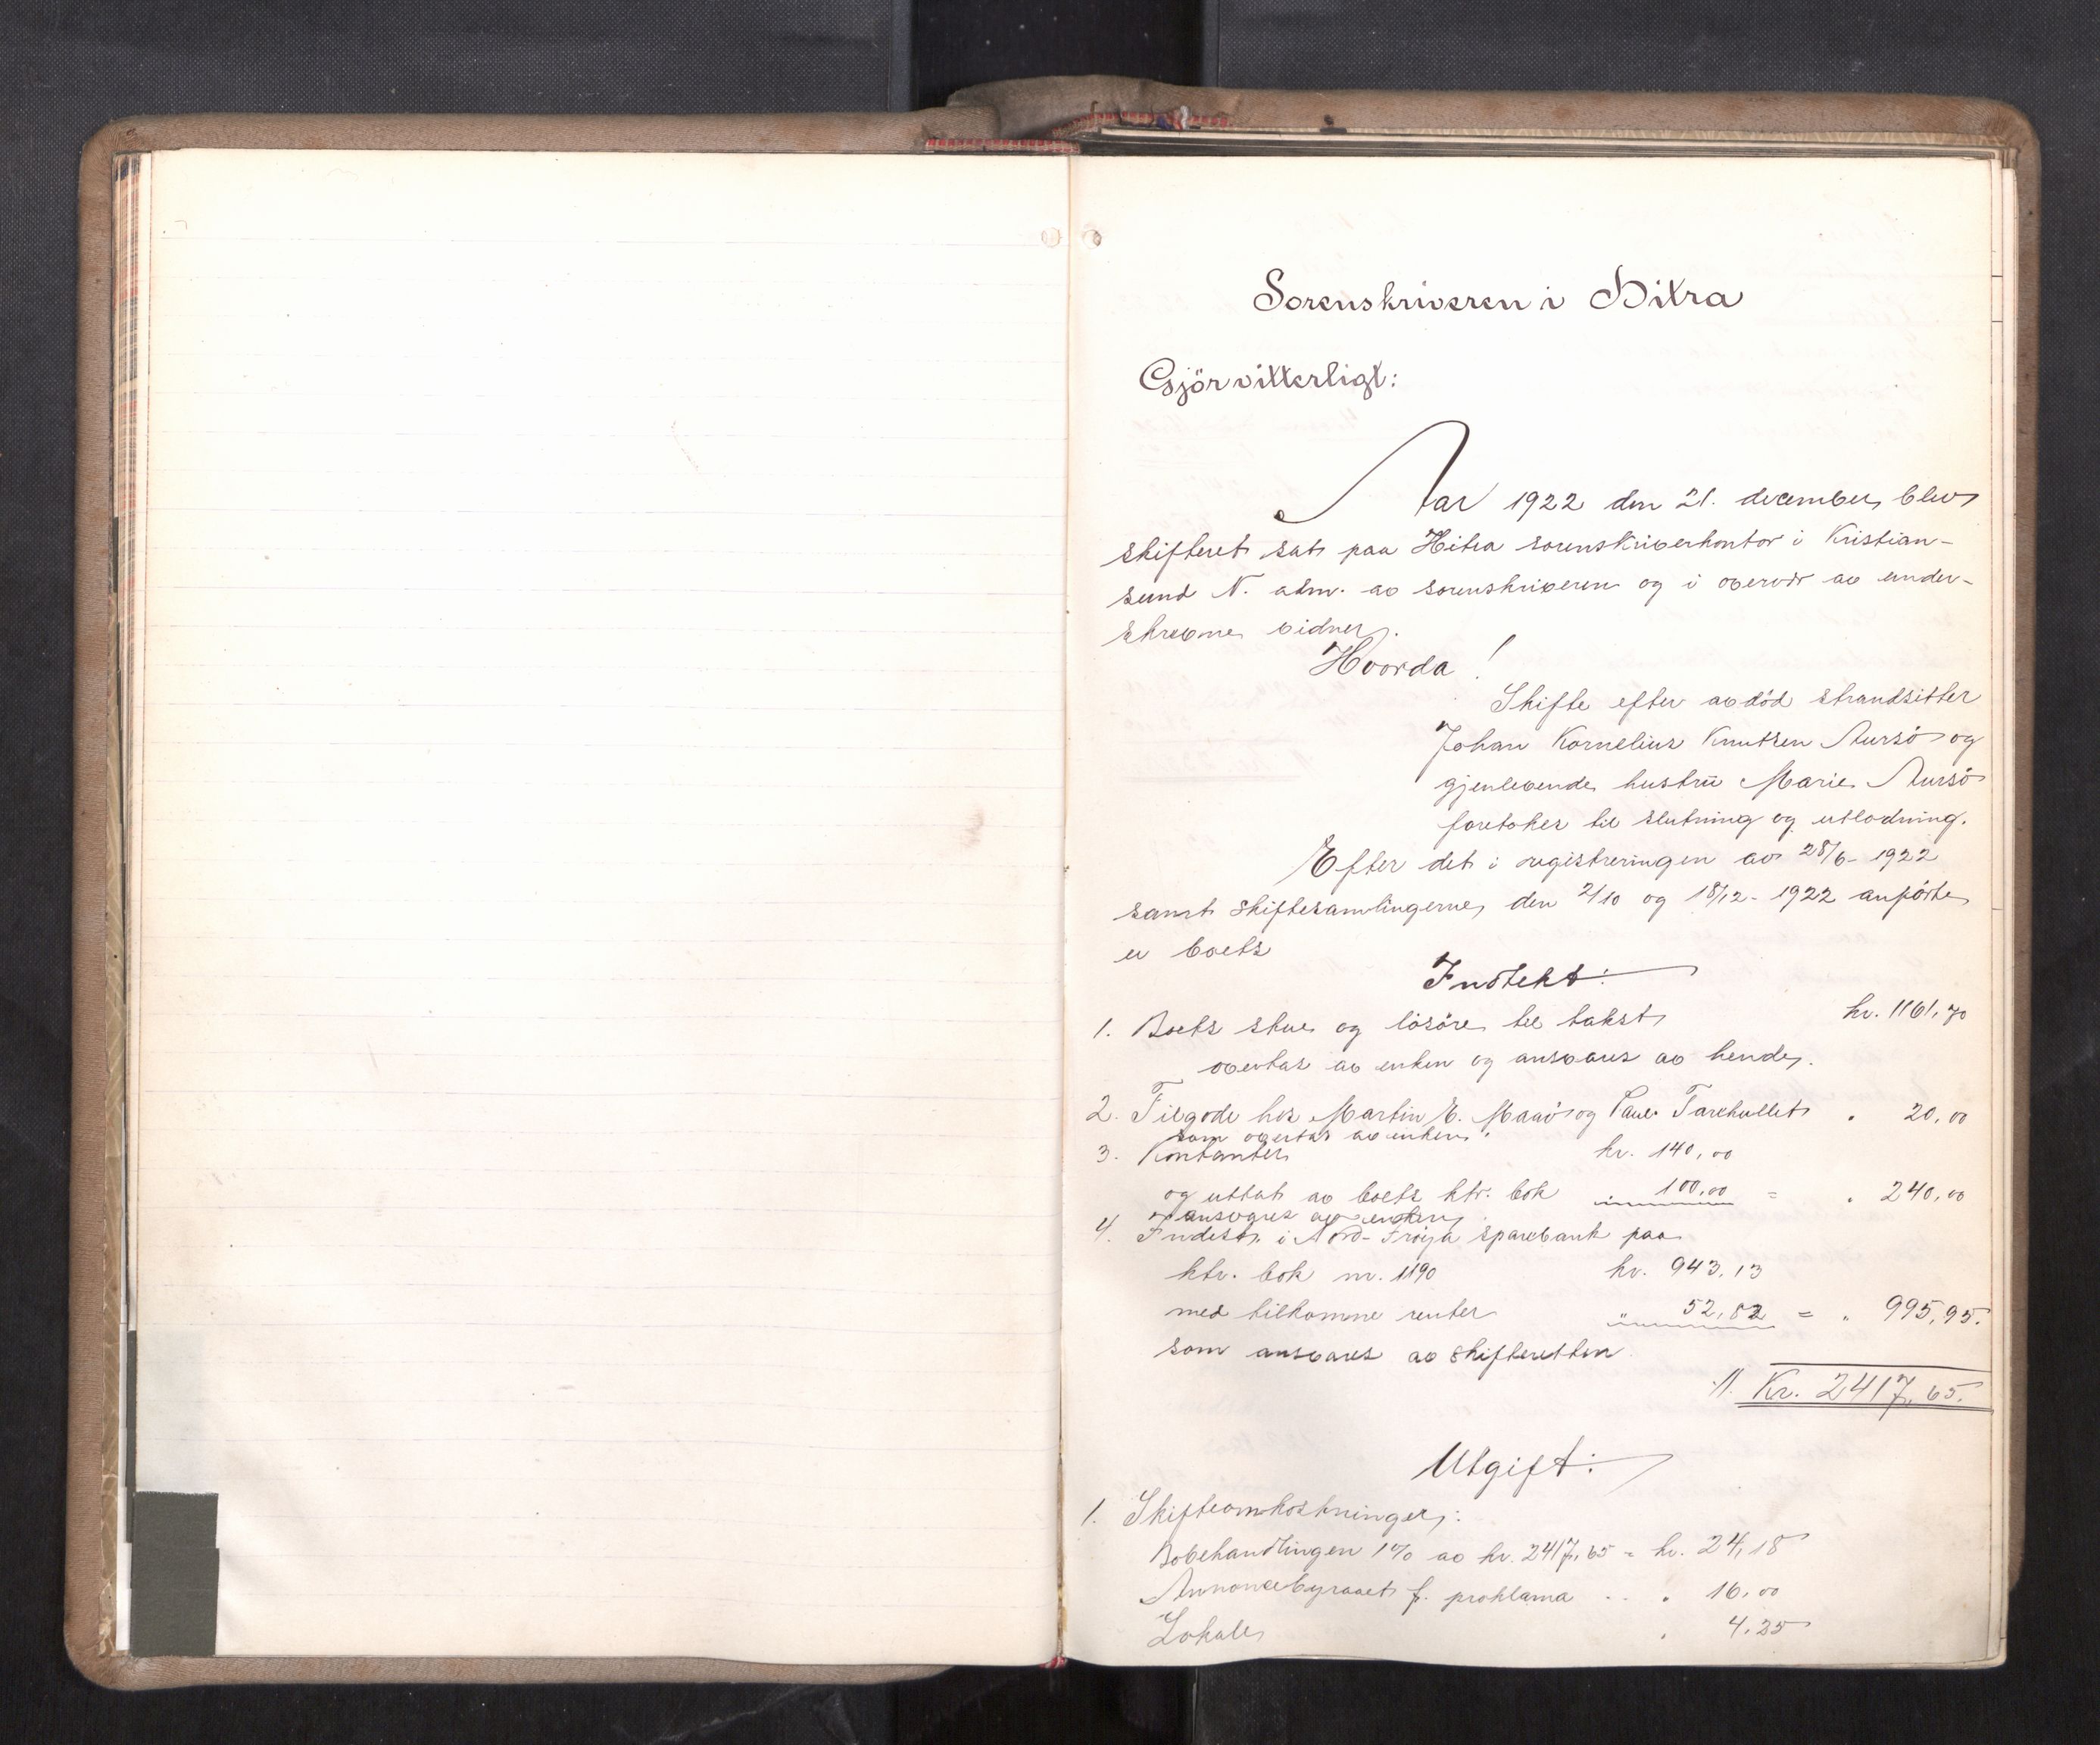 Sorenskriveren i Hitra
Gjör vitterligt:
Aar 1922 den 21. december blev
skifteret sat paa Hitra sorenskriverkontor i Kristian-
sund N. adm. av sorenskriveren og i overvær av under-
skrevne vidner.
Hvorda!
Skifte efter avdöd strandsitter
Johan Kornelius Knutsen Aursö og
gjenlevende hustru Marie Aursö
foretokes til slutning og utlodning.
Efter det i registreringen av 28/6- 1922
samt skiftesamlingerne den 2/10 og 18/12- 1922 anförte
er boets
Indtekt:
1. Boets stue og lösöre til takst kr. 1161,70
overtas av enken og ansvares av hende.
2. Tilgode hos Martin E. Maaö og Paul Tarehullet " 20,00
som overtas av enken.
3. Kontanter kr. 140,00
og uttat av boets ktr. bok " 100,00 = " 240,00
ansvares av enken.
4. Indest. i Nord-Fröya sparebank paa
ktr. bok nr. 1190 kr. 943,13
med tilkomne renter " 52,82 = " 995,95.
som ansvares av skifteretten.
A. Kr. 2417,65.
Utgift:
1. Skifteomkostninger:
Bobehandlingen 1% av kr. 2417,65 = kr. 24,18
Annoncebyraaet f. proklama . . " 16,00
Lokale " 4,25